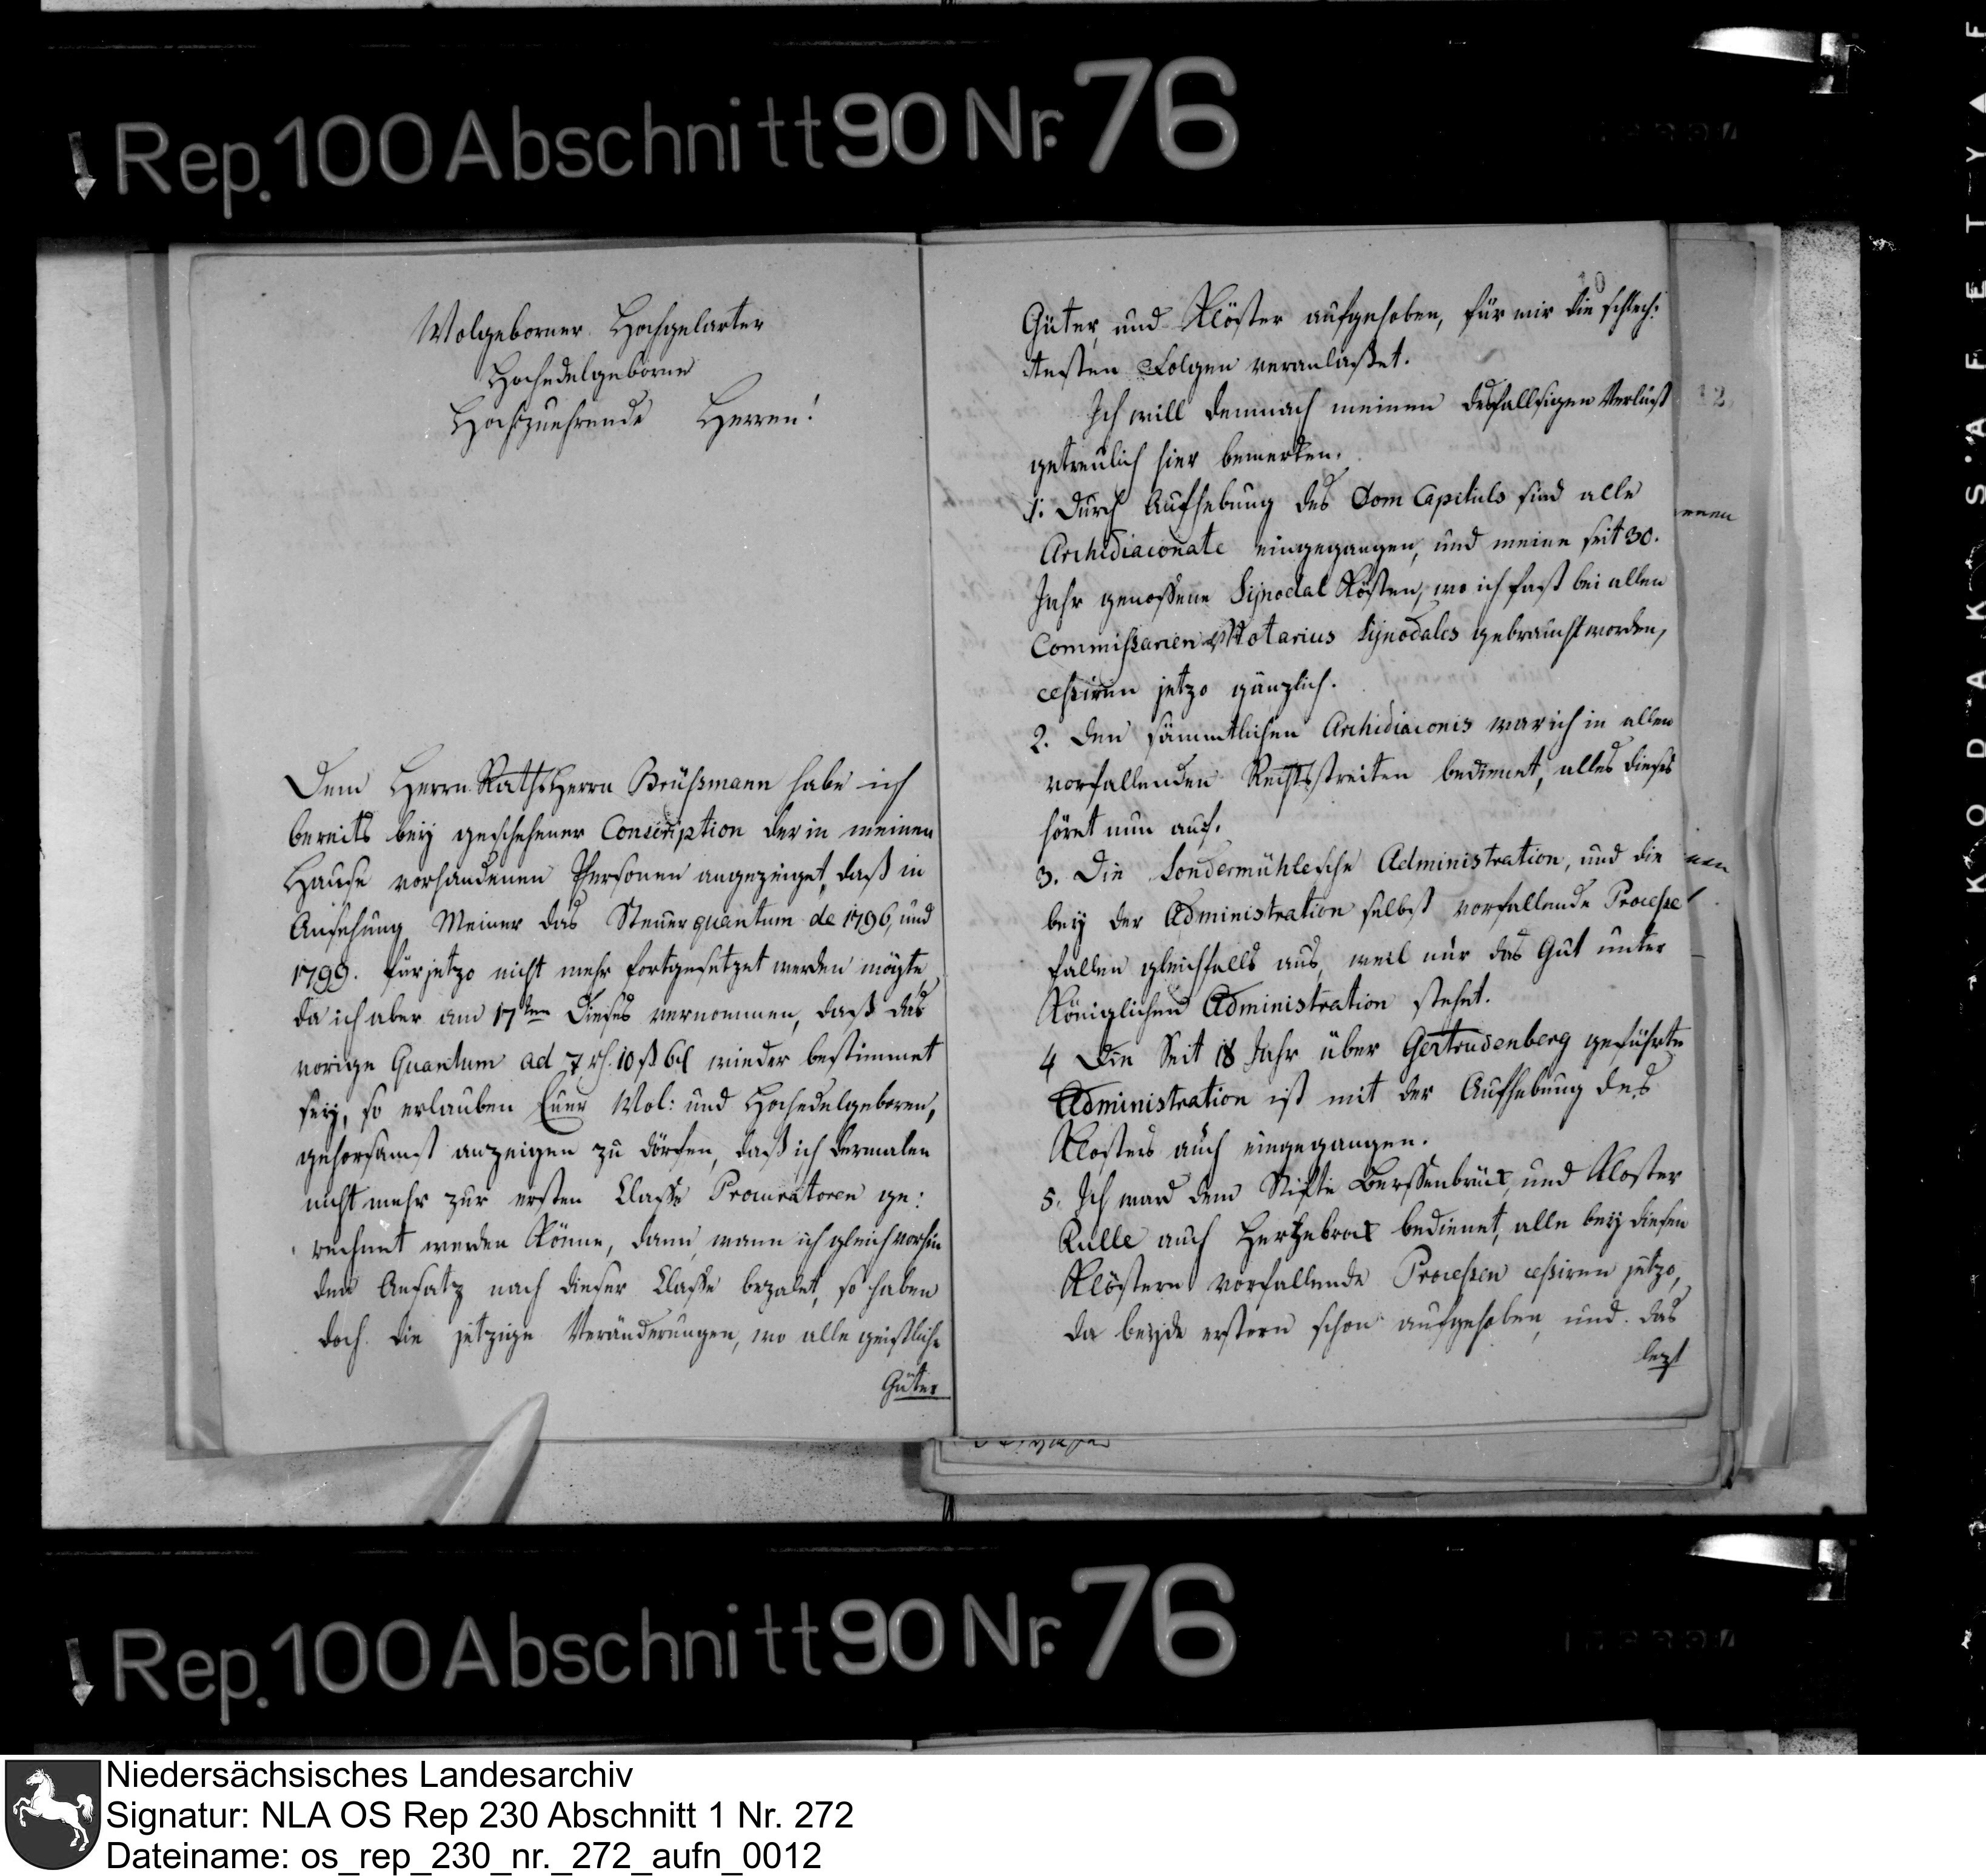 Rep. 100 Abschnitt 90 Nr. 76
Wolgeborner Hochgelarter
Hochedelgeborne
Hochzuehrende Herren!
Dem Herrn RathsHerrn Brüßmann habe ich
bereits beÿ geschehener Conscription der in meinen
Hause vorhandenen Persohnen angezeiget, daß in
Ansehung Meiner das Steuerquantum de 1796, und
1799. für jetzo nicht mehr fortgesetzet werden mögte,
da ich aber am 17ten dieses vernommen, daß das
vorige Quantum ad 7 rh. 10 ß 6 d wieder bestimmet
seÿ, so erlauben Euer Wol: und Hochedelgeboren,
gehorsamst anzeigen zu dörfen, daß ich dermalen
nicht mehr zur ersten Classe Procuratoren ge:
rechnet werden Könne, dann, wann ich gleich vorhin
den Ansatz nach dieser Classe bezalet, so haben
doch die jetzige Veränderungen, wo alle geistliche
Güter
10
Güter, und Klöster aufgehoben, für mir die schlech:
testen Folgen veranlaßet.
Ich will demnach meinen desfallsigen Verlust
getreulich hier bemerken.
1. Durch Aufhebung des Dom Capituls sind alle
Archidiaconate eingegangen, und meine seit 30.
Jahr genossene Sÿnodal Kösten, wo ich fast bei allen
Commißarien Notarius Sÿnodales gebraucht worden,
ceßiren jetzo gänzlich.
2. Den sämmtlichen Archidiaconis war ich in allen
vorfallenden Rechtsstreiten bedienet, alles dieses
höret nun auf.
3. Die Sondermühlesche Administration, und die
beÿ der Administration selbst vorfallende Proceße
fallen gleichfalls aus, weil nur das Gut unter
Königlichen Administration stehet.
4 Die Seit 18 Jahr über Gertrudenberg geführte
Administration ist mit der Aufhebung des
Klosters auch eingegangen.
5. Ich ward dem Stifte Berssenbrück, und Kloster
Rulle auch Hertzebrock bedienet, alle beÿ diesen
Klöstern vorfallende Proceßen ceßiren jetzo,
da beÿde erstern schon aufgehoben, und das
lezt
12
Rep. 100 Abschnitt 90 Nr. 76
KODAK SAFETY F
Niedersächsisches Landesarchiv
Signatur: NLA OS Rep 230 Abschnitt 1 Nr. 272
Dateiname: os_rep_230_nr._272_aufn_0012